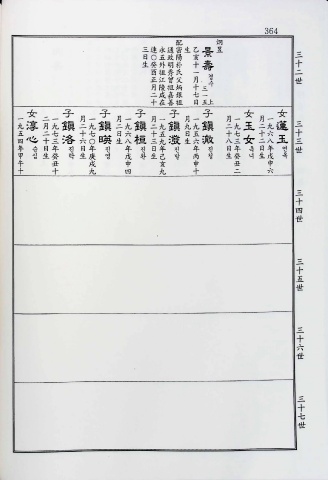 364
三十二世
炯昱
景壽 경수
三一五 上
乙亥十一月十七日
生
配密陽朴氏父炳銀祖
通政明秀曾祖嘉善
永五外祖江陵咸在
連〇癸酉正月二十
三日生
三十三世
女 蓮玉 연옥
一九六八年戊申六
月二十二日生
女 玉女 옥녀
一九七三年癸丑二
月二十八日生
子 鎭澈 진철
一九五六年丙申十
月九日生
子 鎭潑 진발
一九五九年己亥九
月二十一日生
子 鎭桓 진환
一九六八年戊申四
月二日生
子 鎭暎 진영
一九七〇年庚戌九
月二十六日生
子 鎭洛 진락
一九七三年癸丑十
二月二十日生
女 淳心 순심
一九五四年甲午十
三十四世
三十五世
三十六世
三十七世